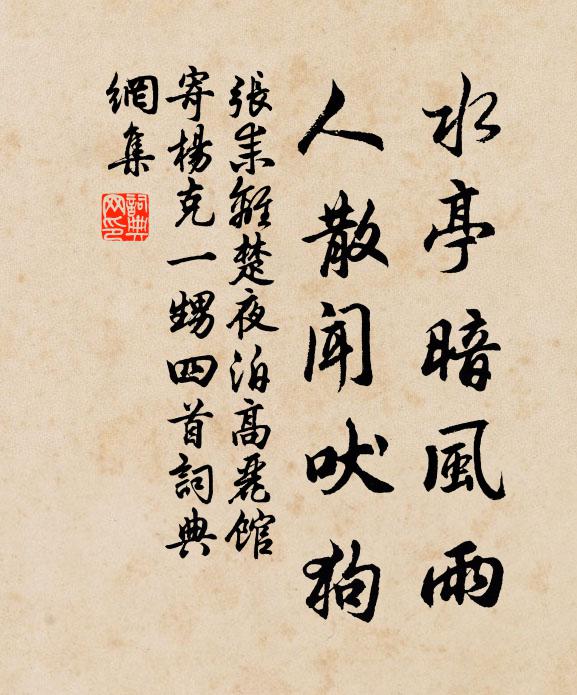 水亭暗風雨
人散聞吠狗
張耒離楚夜泊高麗館
寄楊克一甥四首詞典
網集
詞典
网印